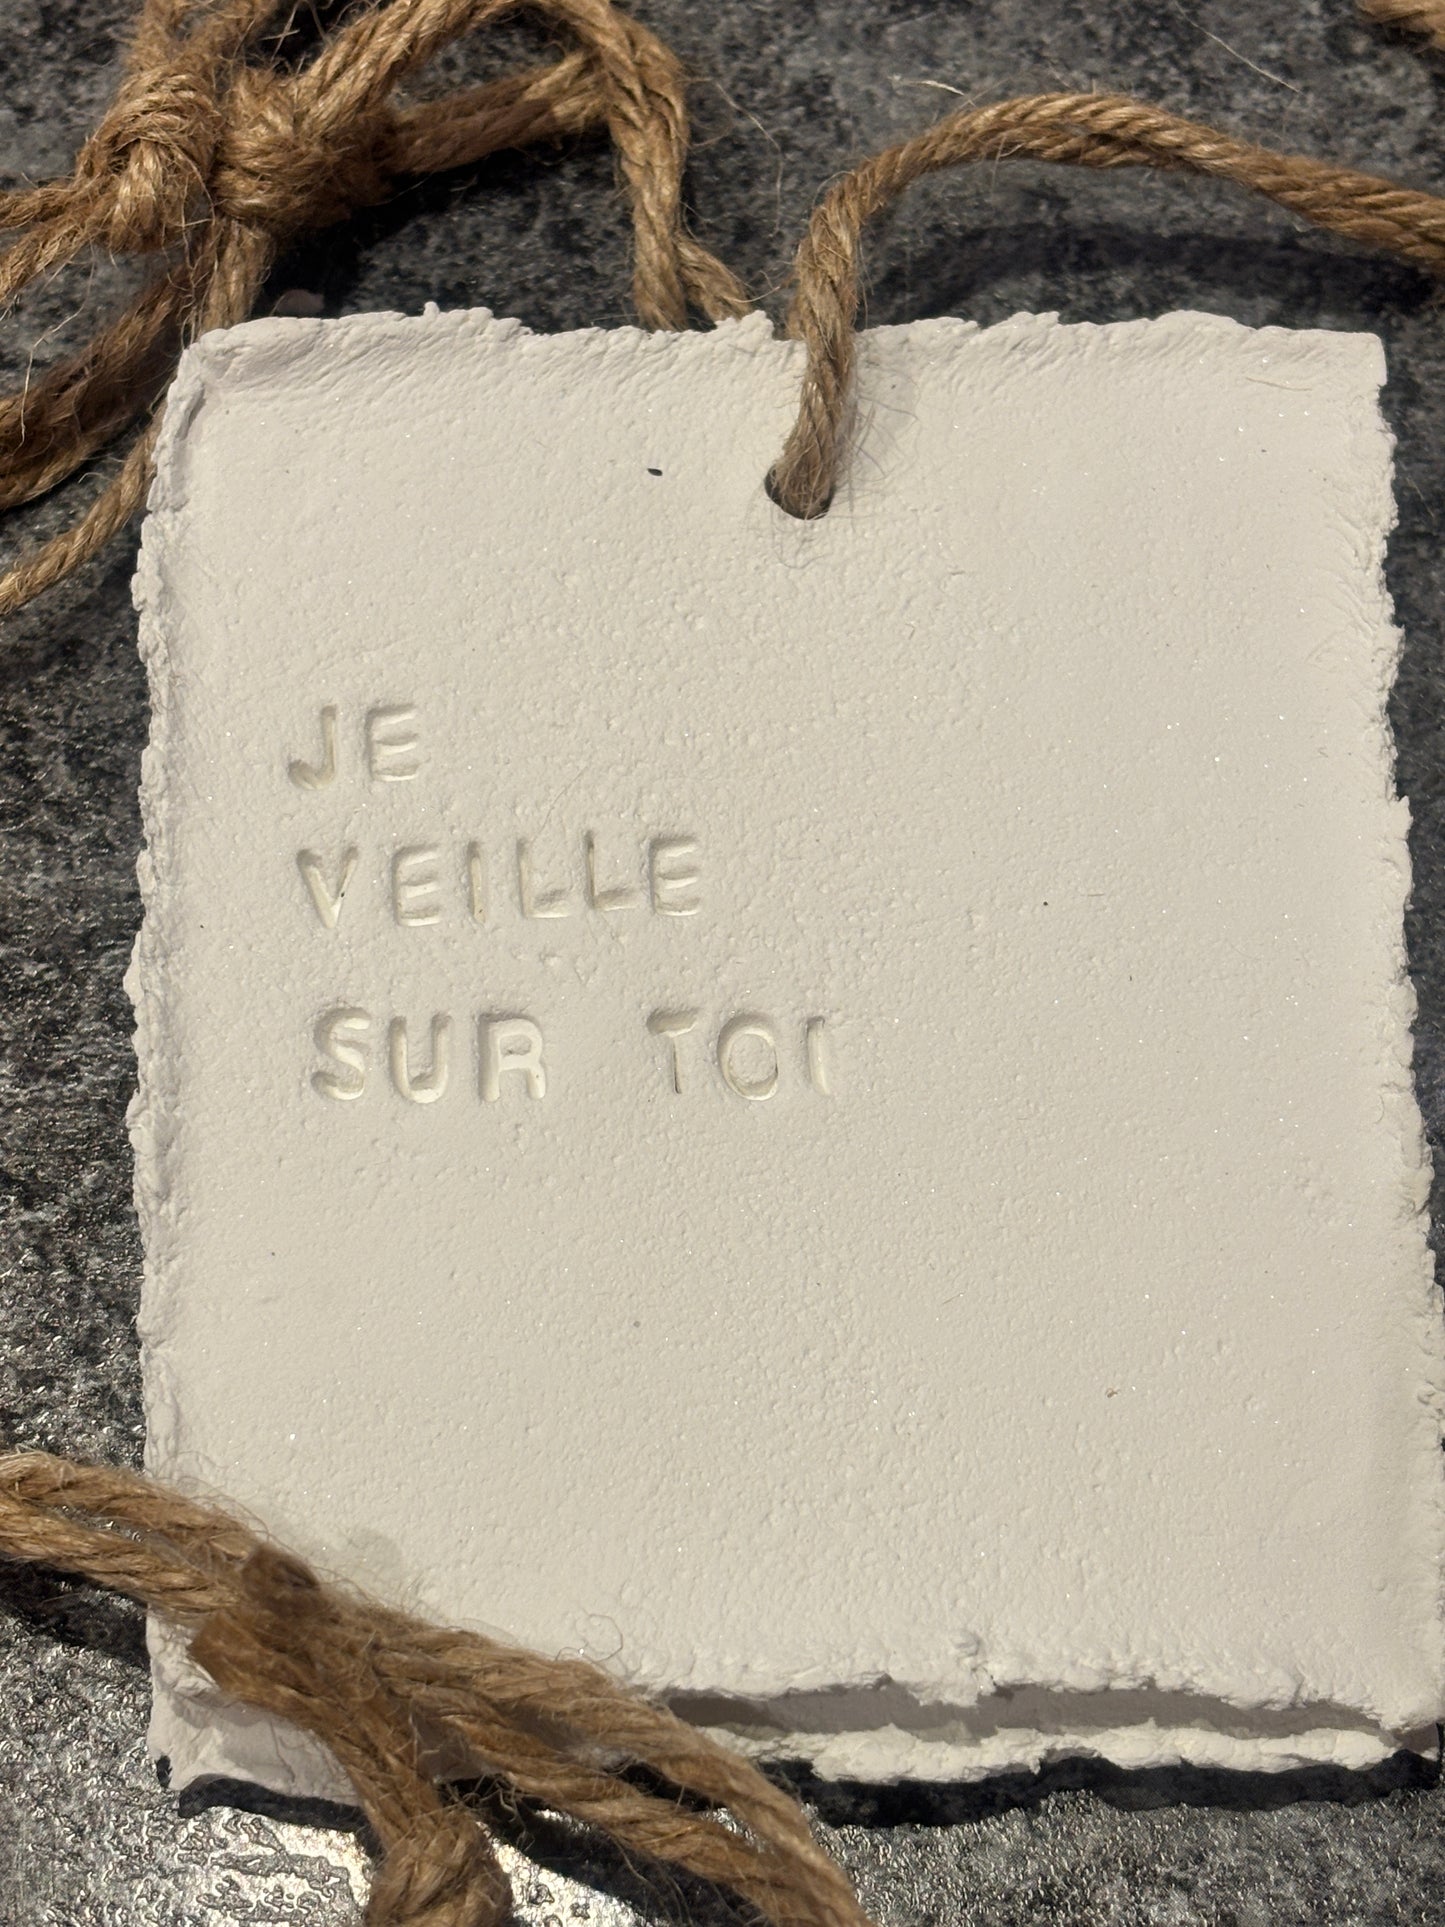 JE
VEILLE
SUR TOI